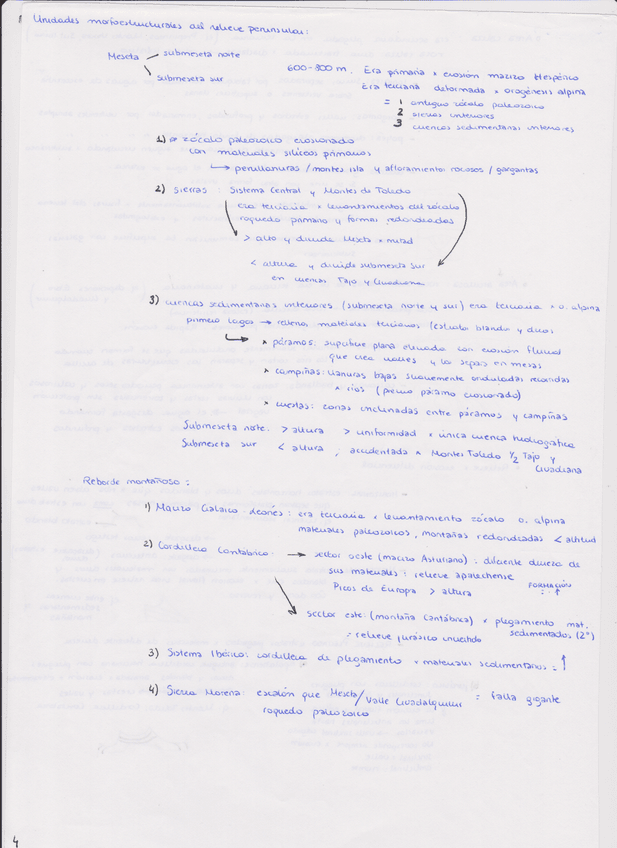 Unidades morfoestructurales del relieve peninsular:
Meseta
submeseta norte
submeseta sur
600-800 m. Era primaria x erosión macizo Hespérico
Era terciaria deformada x orogénesis alpina
= 1 antiguo zócalo paleozoico
2 sierras interiores
3 cuencas sedimentarias interiores
1) zócalo paleozoico erosionado
con materiales silíceos primarios
penillanuras / montes isla y afloramientos rocosos / gargantas
2) Sierras: Sistema Central y Montes de Toledo
era terciaria x levantamientos del zócalo
roquedo primario y formas redondeadas
> alto y divide Meseta x mitad
< altura y divide submeseta sur
en cuencas Tajo y Guadiana
3) cuencas sedimentarias interiores (submeseta norte y sur) era terciaria x o. alpina
primero lagos → rellenos materiales terciarios (estratos blandos y duros
* páramos: superficie plana elevada con erosión fluvial
que crea valles y los separa en mesas
* campiñas: llanuras bajas suavemente onduladas recorridas
x ríos (previo páramo erosionado)
* cuestas: zonas inclinadas entre páramos y campiñas
Submeseta norte: > altura > uniformidad x única cuenca hidrográfica
Submeseta sur < altura, accidentada x Montes Toledo 1/2 Tajo y
Guadiana
Reborde montañoso:
1) Macizo Galaico-Leonés: era terciaria x levantamiento zócalo o. alpina
materiales paleozoicos, montañas redondeadas < altitud
2) Cordillera Cantábrica: → sector oeste (macizo Asturiano): diferente dureza de
sus materiales: relieve apalachense
Picos de Europa > altura
FORMACIÓN
sector este: (montaña Cantábrica) x plegamiento mat.
sedimentados (2º)
= relieve jurásico invertido
3) Sistema Ibérico: cordillera de plegamiento x materiales sedimentarios = ↑
4) Sierra Morena: escalón que Meseta / Valle Guadalquivir = falla gigante
roquedo paleozoico
4